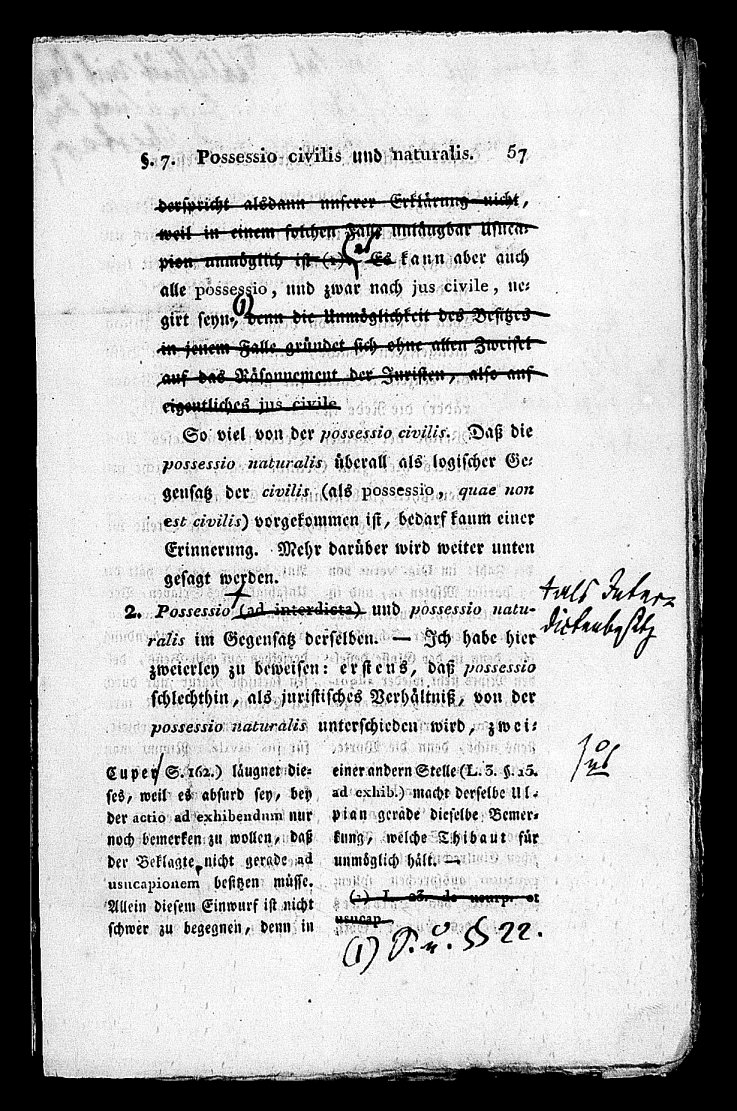 §. 7. Possessio civilis und naturalis. 57
derspricht alsdann unserer Erklärung nicht,
weil in einem solchen Falle unläugbar Usuca-
pion unmöglich ist (2). Es kann aber auch
alle possessio, und zwar nach jus civile, ne-
girt seyn, (1) denn die Unmöglichkeit des Besitzes
in jenem Falle gründet sich ohne allen Zweifel
auf das Räsonnement der Juristen, also auf
eigentliches jus civile.
So viel von der possessio civilis. Daß die
possessio naturalis überall als logischer Ge-
gensatz der civilis (als possessio, quae non
est civilis) vorgekommen ist, bedarf kaum einer
Erinnerung. Mehr darüber wird weiter unten
gesagt werden.
2. Possessio (ad interdicta) und possessio natu-
ralis im Gegensatz derselben. — Ich habe hier
zweierley zu beweisen: erstens, daß possessio
schlechthin, als juristisches Verhältniß, von der
possessio naturalis unterschieden wird, zwei-
als Inter-
dictenbesitz
Cuper S. 162.) läugnet die-
ses, weil es absurd sey, bey
der actio ad exhibendum nur
noch bemerken zu wollen, daß
der Beklagte nicht gerade ad
usucapionem besitzen müsse.
Allein diesem Einwurf ist nicht
schwer zu begegnen, denn in
einer andern Stelle (L. 3. §. 15.
ad exhib.) macht derselbe Ul-
pian gerade dieselbe Bemer-
kung, welche Thibaut für
unmöglich hält. —
(2) L. 23. de usurp. et
usucap.
(1) S. u. §§ 22.